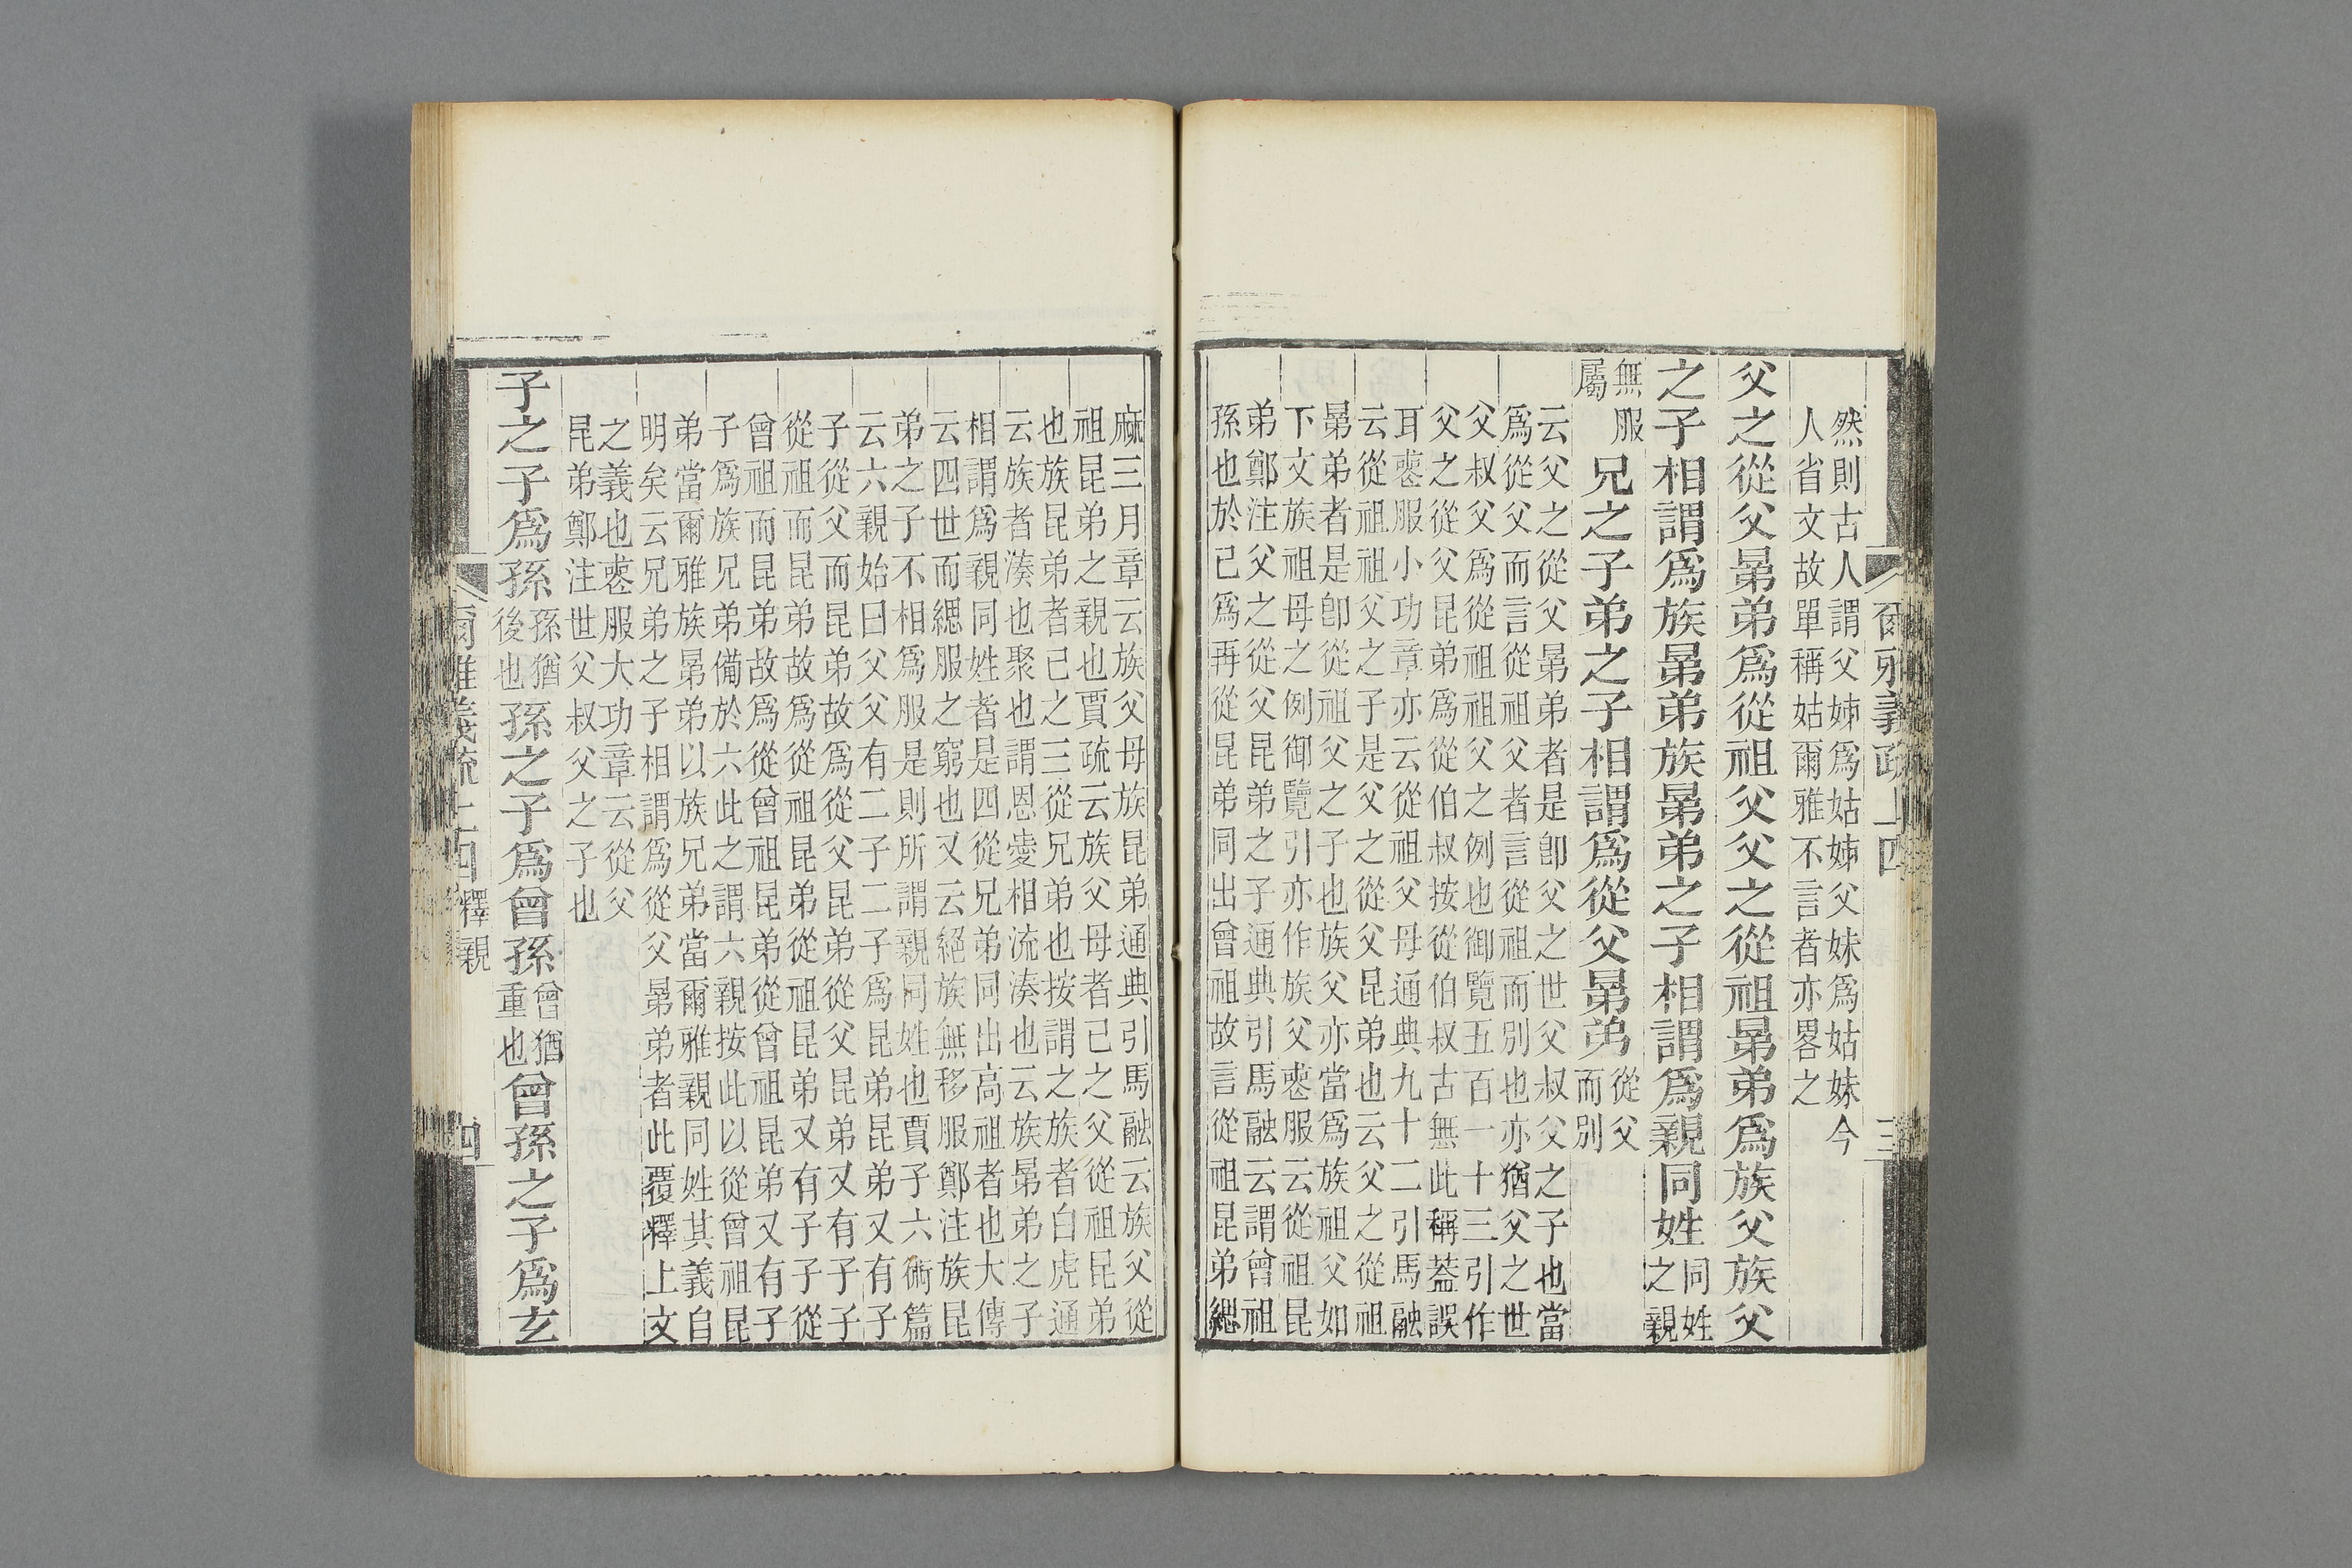 爾雅義疏上四
三
然則古人謂父姊爲姑姊父妹爲姑妹今
人省文故單稱姑爾雅不言者亦畧之
父之從父晜弟爲從祖父父之從祖晜弟爲族父族父
之子相謂爲族晜弟族晜弟之子相謂爲親同姓
同姓
之親
無服
屬
兄之子弟之子相謂爲從父晜弟
從父
而別
云父之從父晜弟者是卽父之世父叔父之子也當
爲從父而言從祖父者言從祖而別也亦猶父之世
父叔父爲從祖祖父之例也御覽五百一十三引作
父之從父昆弟爲從伯叔按從伯叔古無此稱葢誤
耳喪服小功章亦云從祖父母通典九十二引馬融
云從祖祖父之子是父之從父昆弟也云父之從祖
晜弟者是卽從祖父之子也族父亦當爲族祖父如
下文族祖母之例御覽引亦作族父喪服云從祖昆
弟鄭注父之從父昆弟之子通典引馬融云謂曾祖
孫也於己爲再從昆弟同出曾祖故言從祖昆弟緦
麻三月章云族父母族昆弟通典引馬融云族父從
祖昆弟之親也賈疏云族父母者己之父從祖昆弟
也族昆弟者己之三從兄弟也按謂之族者白虎通
云族者湊也聚也謂恩愛相流湊也云族晜弟之子
相謂爲親同姓者是四從兄弟同出高祖者也大傳
云四世而緦服之窮也又云絕族無移服鄭注族昆
弟之子不相爲服是則所謂親同姓也賈子六術篇
云六親始曰父父有二子二子爲昆弟昆弟又有子
子從父而昆弟故爲從父昆弟從父昆弟又有子子
從祖而昆弟故爲從祖昆弟從祖昆弟又有子子從
曾祖而昆弟故爲從曾祖昆弟從曾祖昆弟又有子
子爲族兄弟備於六此之謂六親按此以從曾祖昆
弟當爾雅族晜弟以族兄弟當爾雅親同姓其義自
明矣云兄弟之子相謂爲從父晜弟者此覆釋上文
之義也喪服大功章云從父
昆弟鄭注世父叔父之子也
子之子爲孫
孫猶
後也
孫之子爲曾孫
曾猶
重也
曾孫之子爲玄
爾雅義疏上四
釋親
四